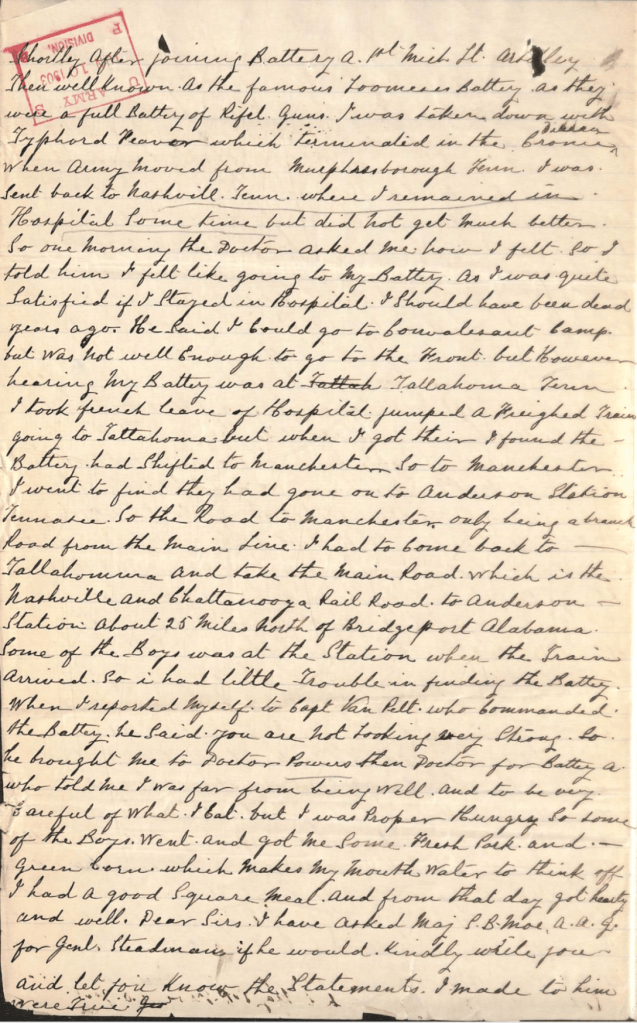 Shortly After joining Battery A. 1st Mich Lt. Artilley
Then well Known As the famous Loomeses Battery as they
were a full Battery of Rifel Guns. I was taken down with
Typhord Feavor which terminated in the Cronic
when Army moved from Murphresborough Tenn. I was
Sent back to Nashvill. Tenn. where I remained in
Hospital Some time but did not get Much better.
So one morning the Doctor asked Me how I felt. So I
told him I felt like going to My Battery. As I was quite
Satisfied if I Stayed in Hospital. I Should have been dead
years ago. He Said I Could go to Convalesaut Camp.
but was not well Enough to go to the Front. but However
hearing My Battery was at Tattah Tallahoma Tenn
I took french leave of Hospital jumped A Freighed Train
going to Tattahoma but when I got their I found the
Battery had Shifted to Manchester So to Manchester
I went to find they had gone on to Anderson Station
Tennasee. So the Road to Manchester only being a branch
Road from the Main Line. I had to Come back to
Tallahomma And take the Main Road. which is the
Nashville and Chattanooga Rail Road. to Anderson
Station About 25 Miles North of Bridgeport Alabama.
Some of the Boys was at the Station when the Train
Arrived. So i had little Trouble in finding the Battey.
When I reported Myself. to Capt Van Pelt. who Commanded.
the Battey. he Said. you are not Looking very Strong. So
he brought Me to Doctor Powers then Doctor for Battey A.
who told Me I was far from being Well. And to be very
Careful of What. I Eat. but I was Proper Hungry So some
of the Boys. Went and got Me Some Fresh Pork. and.
Green Corn. which Makes My Mouth Water to think off
I had A good Square Meal. And from that day got hearty
and well. Dear Sirs. I have Asked Maj S. B. Moe. A. A. G.
for Genl. Steadman if he would. Kindly write you
And let you Know the Statements. I Made to him
were True
U S ARMY
1903
DIVISION.